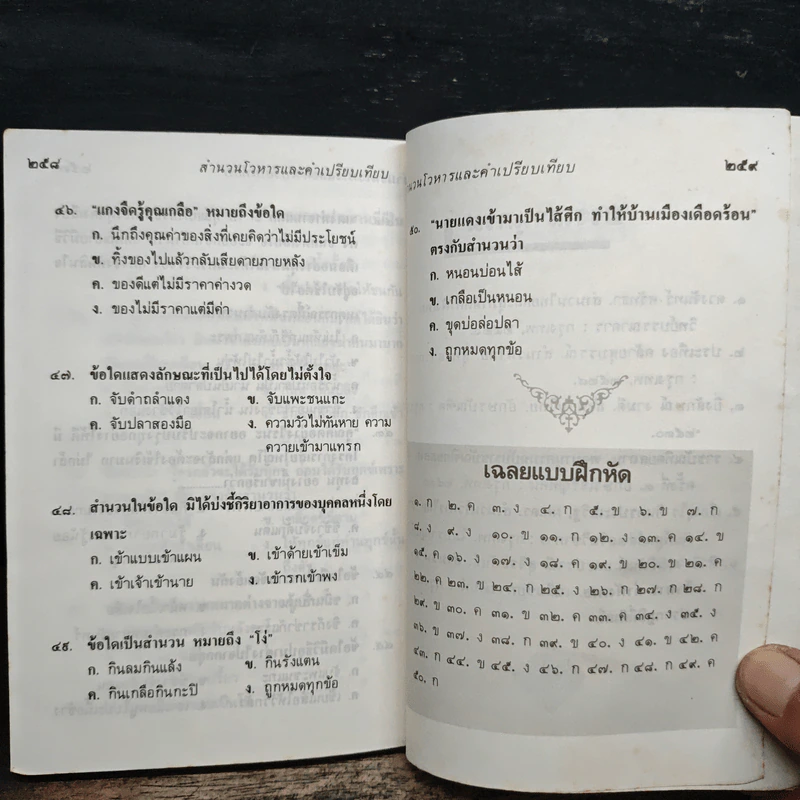 ๒๕๘
สำนวนโวหารและคำเปรียบเทียบ
๔๖. "แกงจืดรู้คุณเกลือ" หมายถึงข้อใด
ก. นึกถึงคุณค่าของสิ่งที่เคยคิดว่าไม่มีประโยชน์
ข. ทิ้งของไปแล้วกลับเสียดายภายหลัง
ค. ของดีแต่ไม่มีราคาค่างวด
ง. ของไม่มีราคาแต่มีค่า
๔๗. ข้อใดแสดงลักษณะที่เป็นไปได้โดยไม่ตั้งใจ
ก. จับดำถลำแดง ข. จับแพะชนแกะ
ค. จับปลาสองมือ ง. ความวัวไม่ทันหาย ความ
ควายเข้ามาแทรก
๔๘. สำนวนในข้อใด มิได้บ่งชี้กิริยาอาการของบุคคลหนึ่งโดย
เฉพาะ
ก. เข้าแบบเข้าแผน ข. เข้าด้ายเข้าเข็ม
ค. เข้าเจ้าเข้านาย ง. เข้ารกเข้าพง
๔๙. ข้อใดเป็นสำนวน หมายถึง "โง่"
ก. กินลมกินแล้ง ข. กินรังแตน
ค. กินเกลือกินกะปิ ง. ถูกหมดทุกข้อ
นวนโวหารและคำเปรียบเทียบ
๒๕๙
๕๐. "นายแดงเข้ามาเป็นไส้ศึก ทำให้บ้านเมืองเดือดร้อน"
ตรงกับสำนวนว่า
ก. หนอนบ่อนไส้
ข. เกลือเป็นหนอน
ค. ขุดบ่อล่อปลา
ง. ถูกหมดทุกข้อ
เฉลยแบบฝึกหัด
๑. ก ๒. ค ๓. ง ๔. ก ๕. ข ๖. ข ๗. ก
๘. ง ๙. ง ๑๐. ข ๑๑. ก ๑๒. ง ๑๓. ค ๑๔. ข
๑๕. ค ๑๖. ง ๑๗. ง ๑๘. ค ๑๙. ข ๒๐. ข ๒๑. ค
๒๒. ค ๒๓. ข ๒๔. ก ๒๕. ง ๒๖. ก ๒๗. ก ๒๘. ก
๒๙. ข ๓๐. ค ๓๑. ข ๓๒. ค ๓๓. ค ๓๔. ง ๓๕. ง
๓๖. ข ๓๗. ง ๓๘. ก ๓๙. ข ๔๐. ง ๔๑. ข ๔๒. ค
๔๓. ก ๔๔. ข ๔๕. ง ๔๖. ก ๔๗. ก ๔๘. ก ๔๙. ค
๕๐. ก